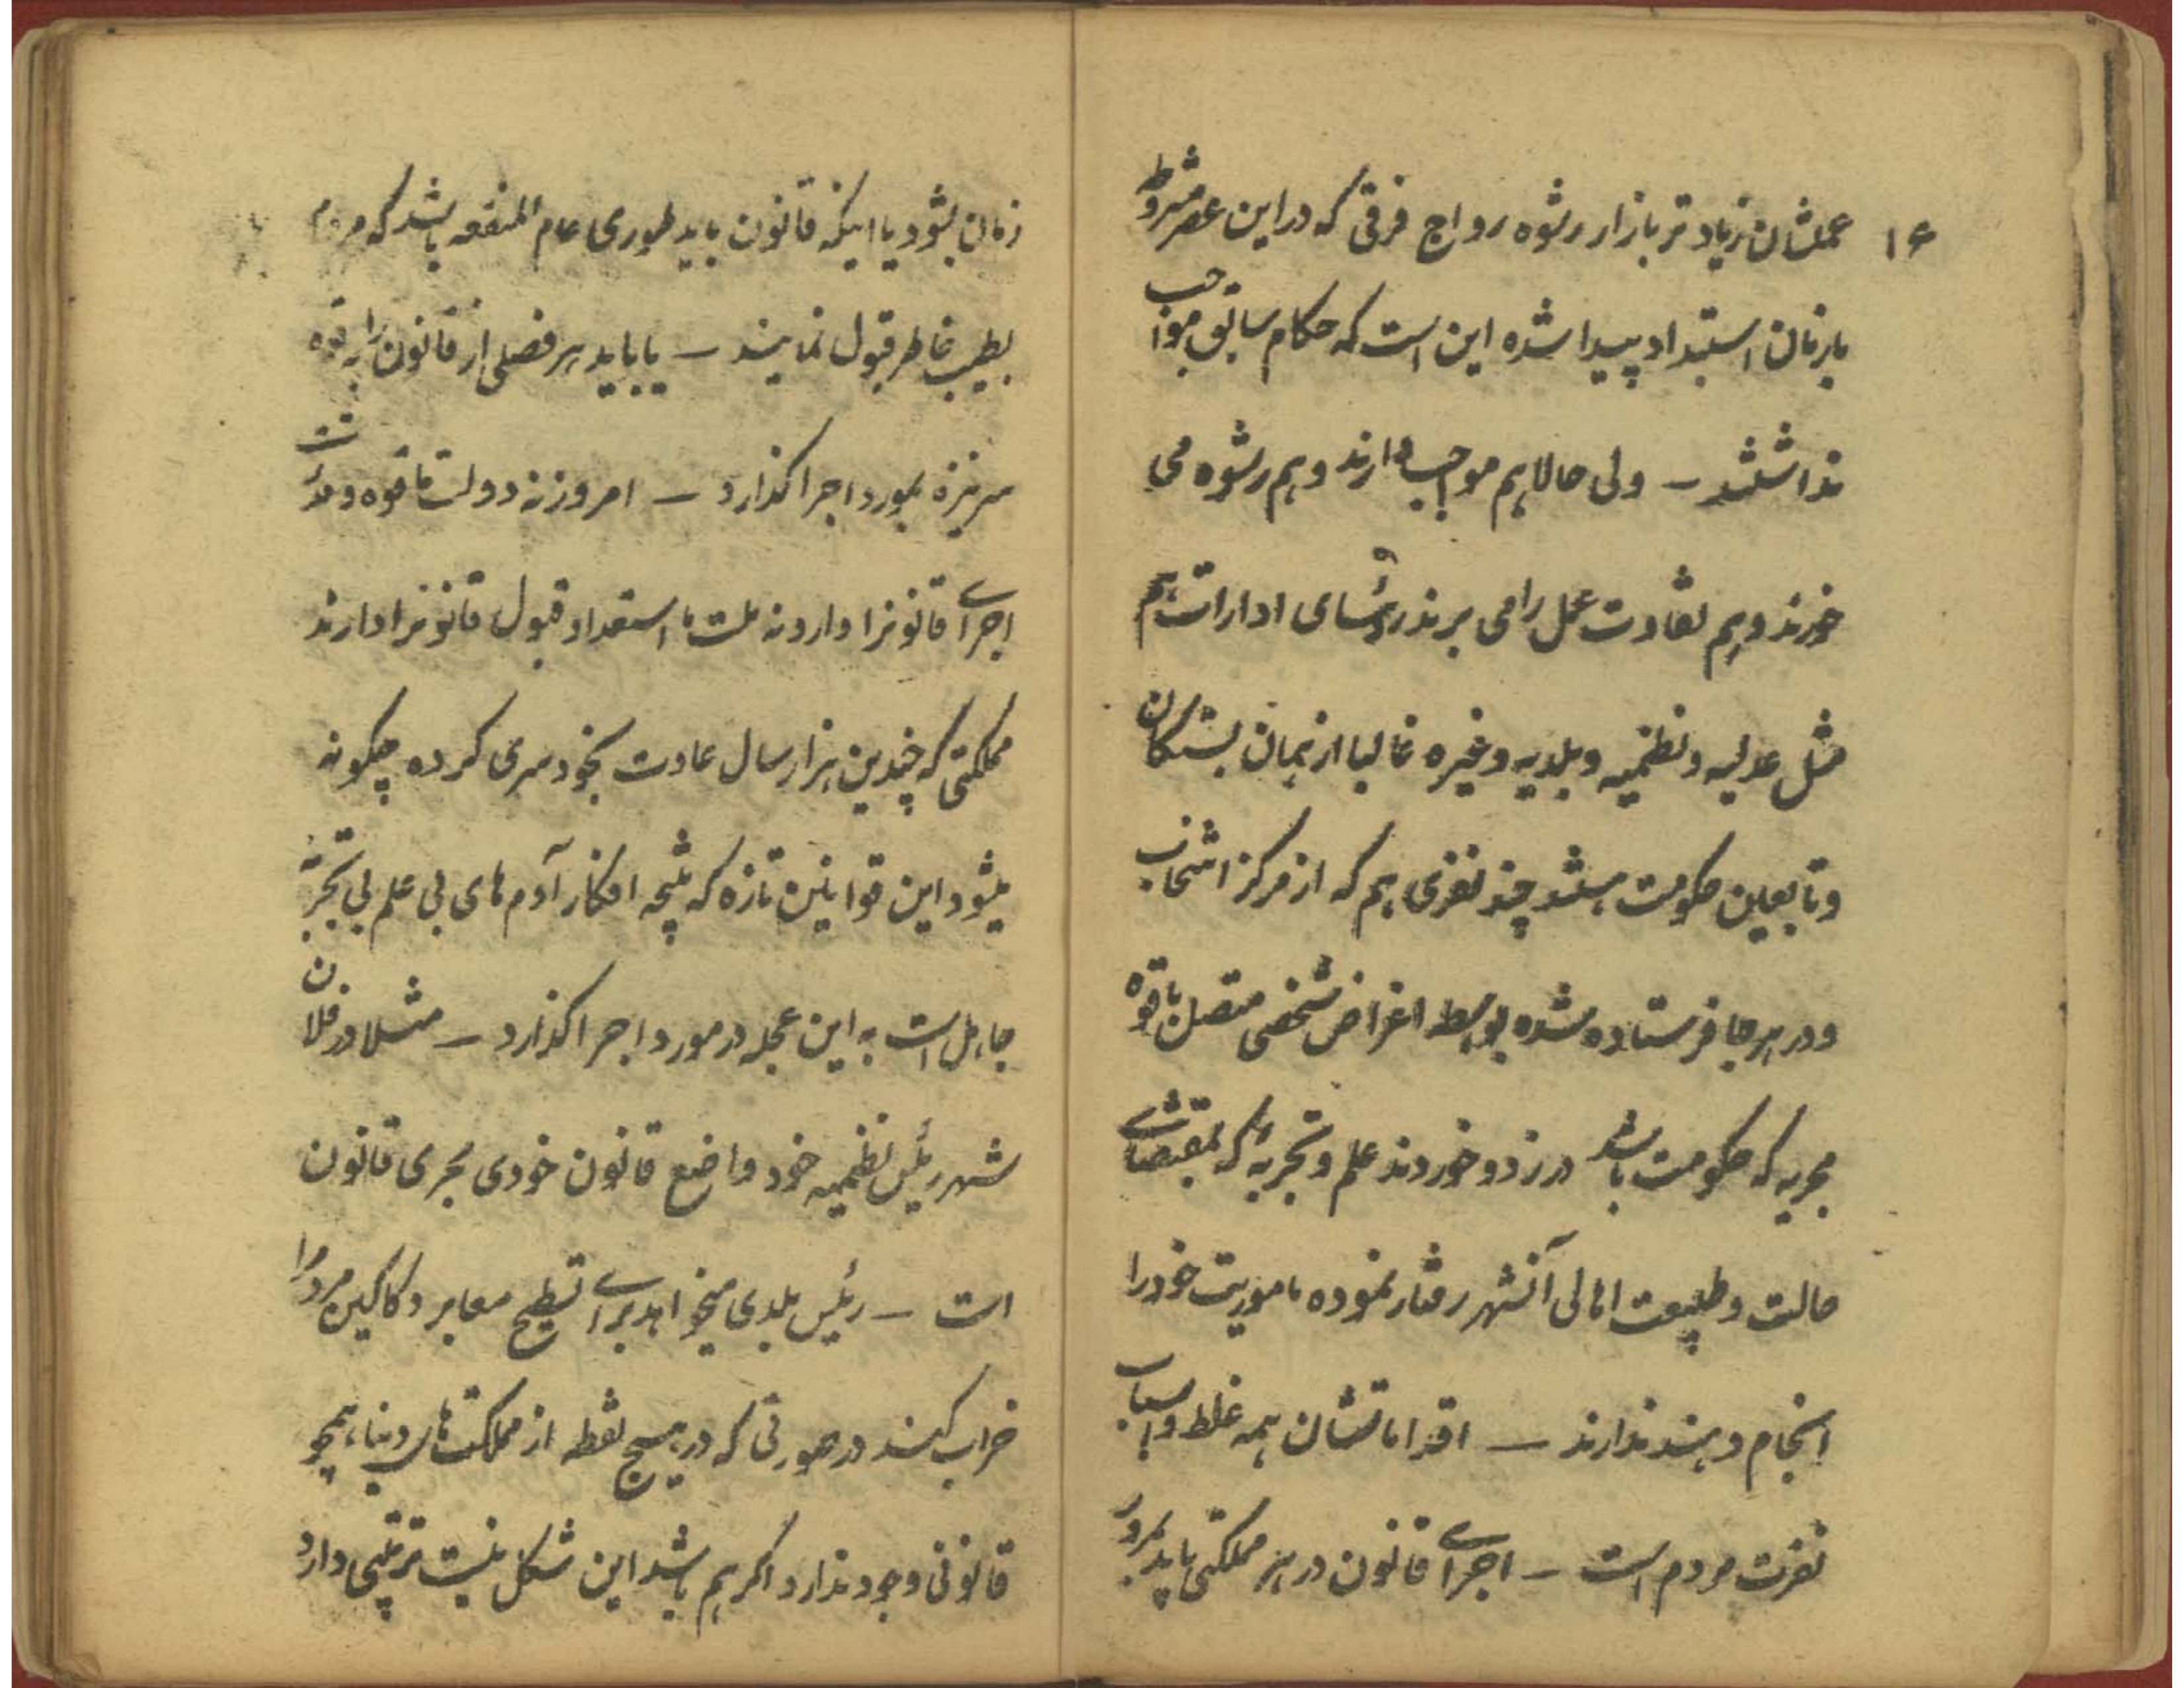 ۱۶
عملشان زیادتر بازار رشوه رواج فرقی که در این عصر مشروطه
بازمان استبداد پیدا شده این است که حکام سابق مواجب
نداشتند – ولی حالا هم مواجب دارند و هم رشوه می
خورند و هم تفاوت عمل را می برند رؤسای ادارات هم
مثل عدلیه و نظمیه و بلدیه و غیره غالبا از همان بستگان
و تابعین حکومت هستند چند نفری هم که از مرکز انتخاب
و در هر جا فرستاده شده بواسطه اغراض شخصی متصل با قوه
مجریه که حکومت باشد در زد و خوردند علم و تجربهٔ که بمقتضای
حالت و طبیعت اهالی آنشهر رفتار نموده ماموریت خود را
انجام دهند ندارند – اقداماتشان همه غلط و اسباب
نفرت مردم است – اجرای قانون در هر مملکتی باید بمرور
زمان بشود یا اینکه قانون باید طوری عام المنفعه باشد که مردم
بطیب خاطر قبول نمایند – یا باید هر فصلی از قانون را به قوه
سرنیزه بمورد اجرا گذارد – امروز نه دولت ما قوه و قدرت
اجرای قانونرا دارد و نه ملت ما استعداد قبول قانونرا دارند
مملکتی که چندین هزار سال عادت بخودسری کرده چگونه
میشود این قوانین تازه که نتیجه افکار آدم های بی علم بی تجربه
جاهل است به این عجله در مورد اجرا گذارد – مثلا در فلان
شهر رئیس نظمیه خود واضع قانون خودی مجری قانون
است – رئیس بلدی میخواهد برای تسطیح معابر دکاکین مردم را
خراب کند در صورتی که در هیچ نقطه از مملکت های دنیا همچو
قانونی وجود ندارد اگر هم باشد این شکل نیست ترتیبی دارد